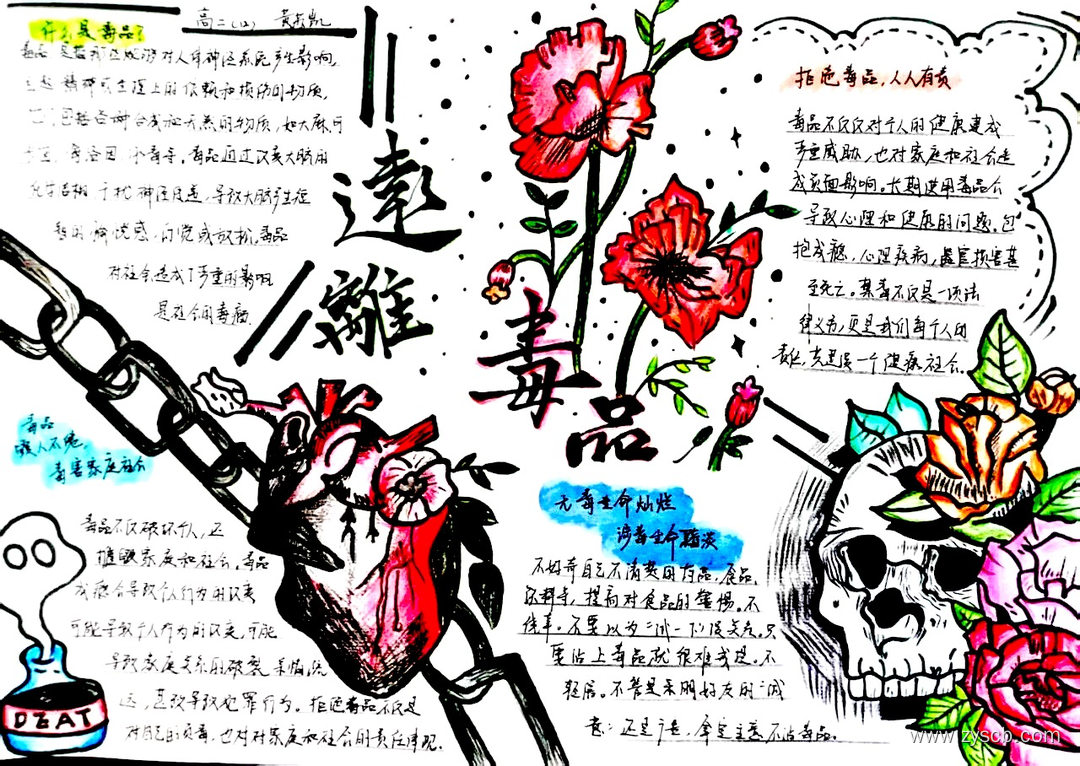 高二(12) 黄
什么是毒品?
毒品是指那些成瘾对人体神经系统产生影响,
引起精神或生理上的依赖和损伤的物质,
它包括各种合成和天然的物质,如大麻、可
卡因、海洛因、冰毒等。毒品通过改变大脑的
化学 干扰神经传递,导致大脑产生短
暂的愉悦感、幻觉或放松,毒品
对社会造成了严重的影响
是社会的毒瘤
遠離
毒品
拒绝毒品,人人有责
毒品不仅仅对个人的健康造成
严重威胁,也对家庭和社会造
成负面影响。长期使用毒品会
导致心理和健康的问题。包
抱成瘾,心理疾病,器官损害甚
至死亡。禁毒不仅是一项法
律义务,更是我们每个人的
责任,共建设一个健康社会。
毒品
毁人不倦,
毒害家庭社会
毒品不仅破坏个人,还
摧毁家庭和社会。毒品
成瘾会导致个人行为的改变
可能导致个人行为的改变,可能
导致家庭关系的破裂、亲情流
逝,甚致导致犯罪行为。拒绝毒品不仅是
对自己的负责,也对对家庭和社会的责任体现。
DEAT
无毒生命灿烂
涉毒生命黯淡
不好奇自己不清楚的药品,食品,
饮料等,提高对食品的警惕。不
侥幸。不要以为"试一下"没关系。只
要沾上毒品就很难戒掉。不
轻信。不管是亲朋好友的"诚
意",还是 ,拿定主意不沾毒品。
www.zyscb.com